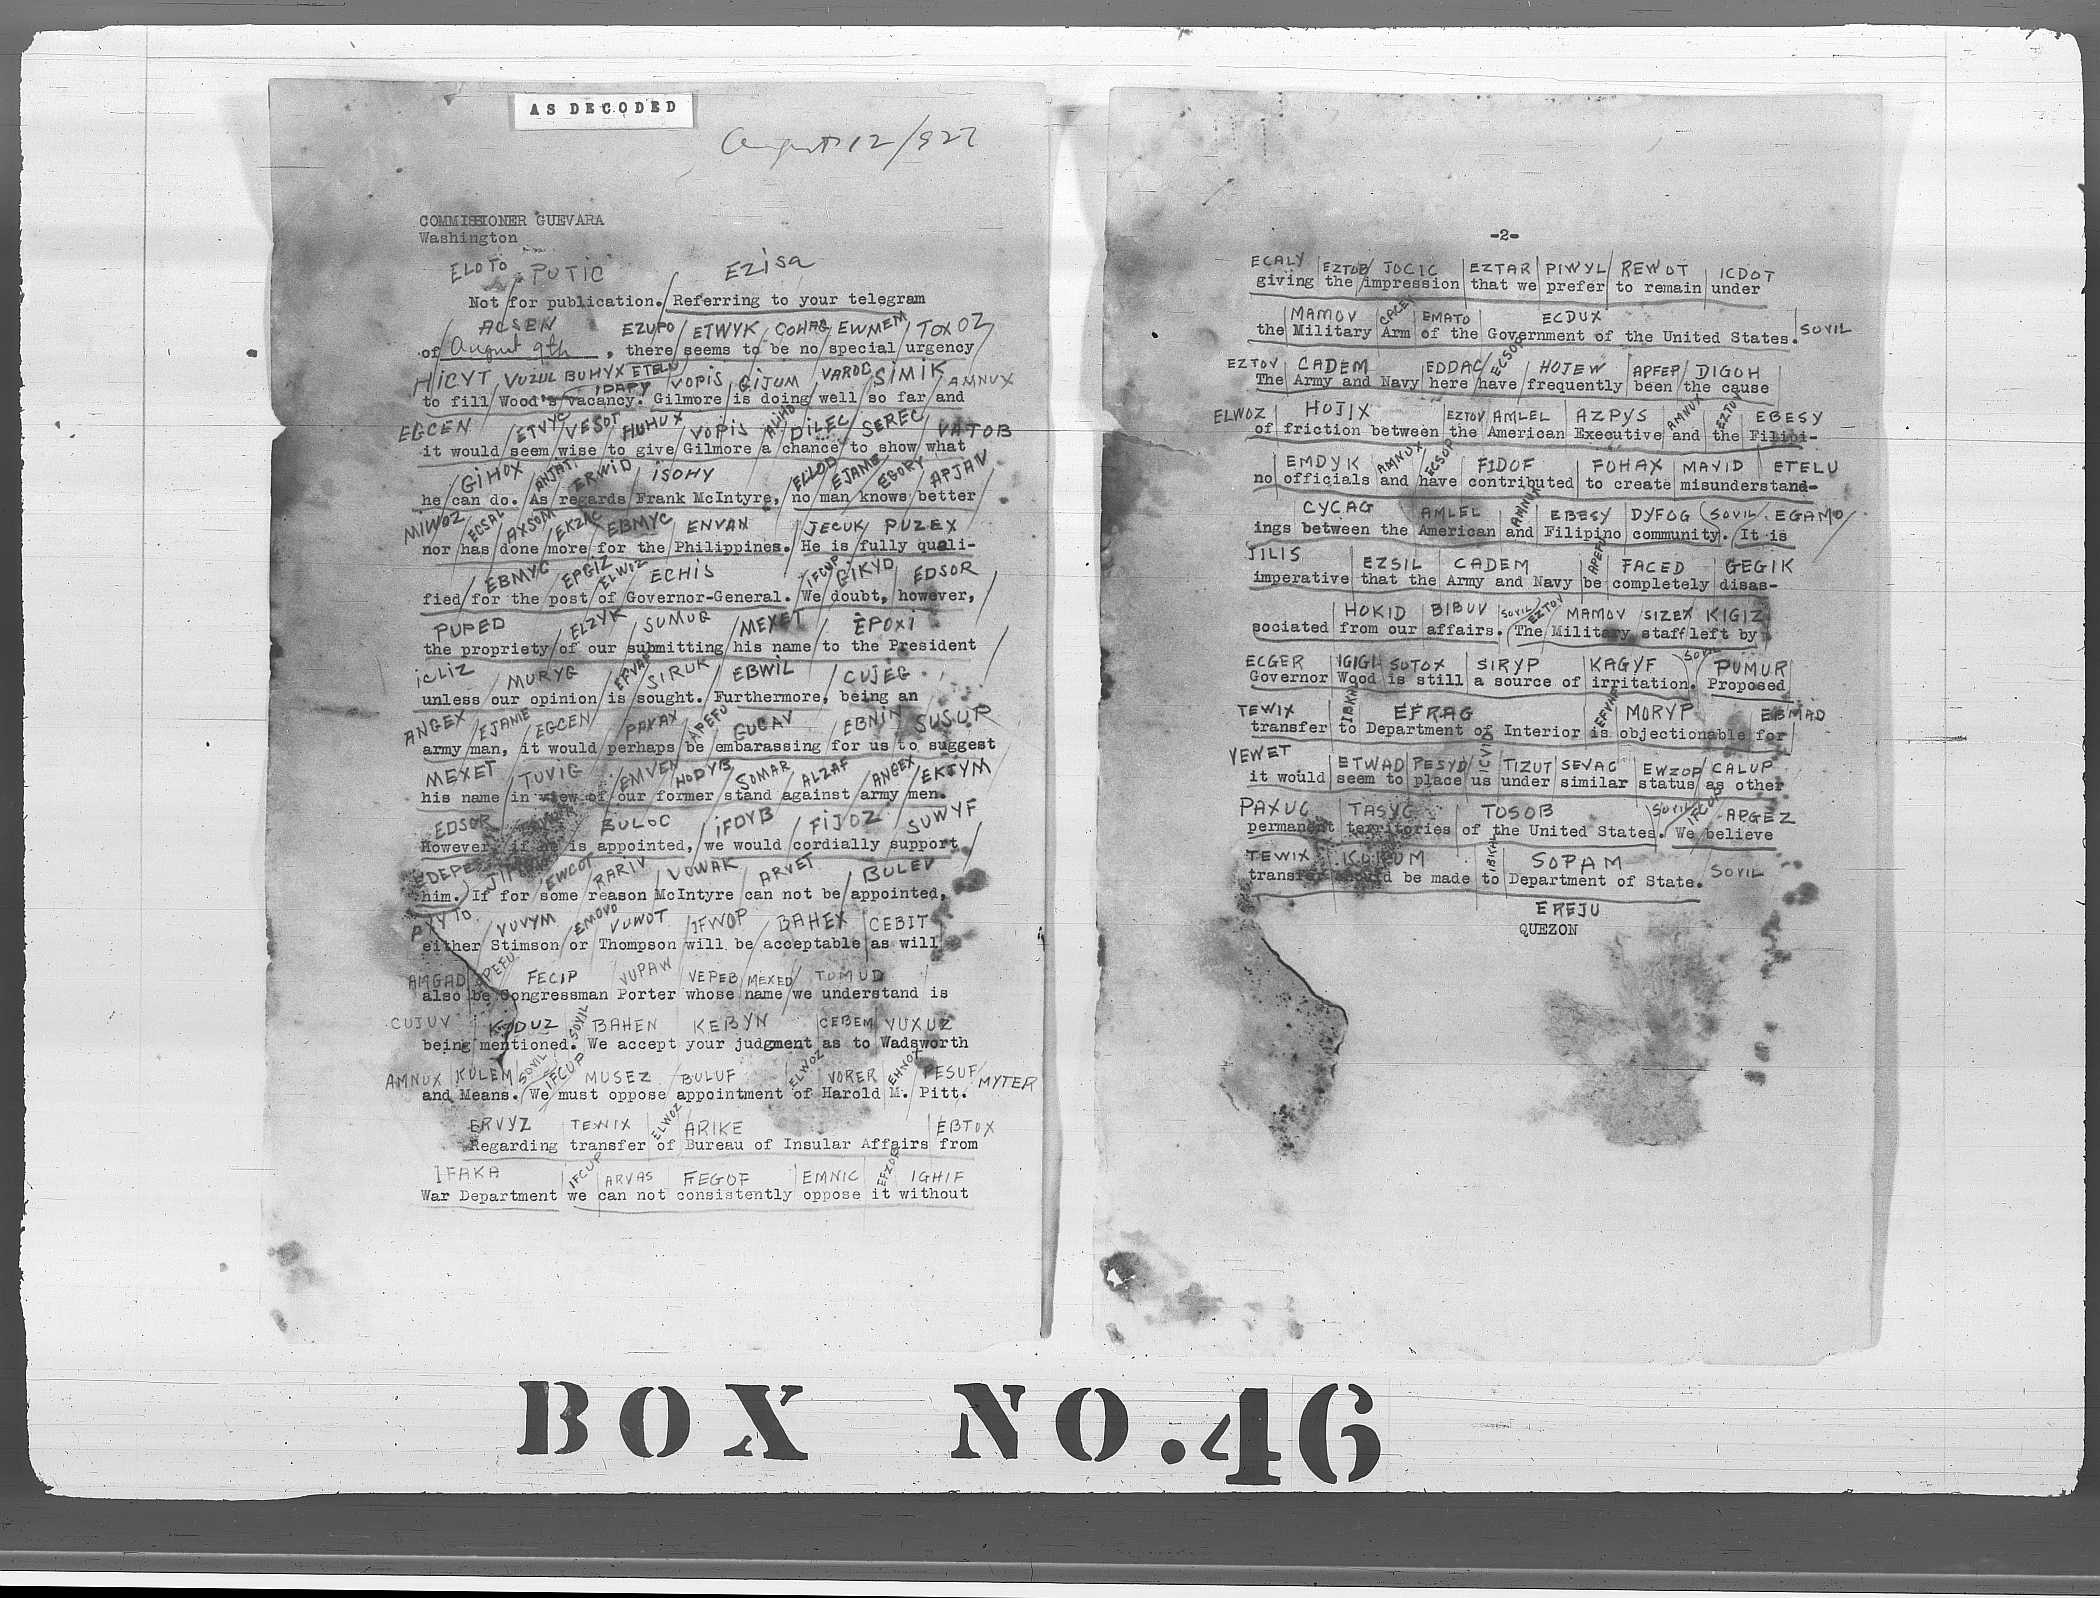 AS DECODED
August 12/927
COMMISSIONER GUEVARA
Washington
ELOTO PUTIC EZISA
Not for publication. Referring to your telegram
ACSEN EZUPO ETWYK COHAG EWMEM TOXOZ
of August 9th, there seems to be no special urgency
HICYT VUZUL BUHYX ETELU IDAPY VOPIS GIJUM VAROC SIMIK AMNUX
to fill Wood's vacancy. Gilmore is doing well so far and
EGCEN ETVYC VESOT HUHUX VOPIS ALIHD DILEC SEREC VATOB
it would seem wise to give Gilmore a chance to show what
GIHOX ANJATI ERWID ISOHY ELLOD EJAME EGORY APJAN
he can do. As regards Frank McIntyre, no man knows better
MIWOZ ECSAL AXSOM EKZAC EBMYC ENVAN JECUK PUZEX
nor has done more for the Philippines. He is fully quali-
EBMYC EPGIZ ELWIZ ECHIS IFCUP GIKYD EDSOR
fied for the post of Governor-General. We doubt, however,
PUPED ELZYK SUMUQ MEXET EPOXI
the propriety of our submitting his name to the President
ICLIZ MURYG EFVAR SIRUK EBWIL CUJEG
unless our opinion is sought. Furthermore, being an
ANGEX EJAME EGCEN PAXAX APEFU GUCAV EBNIN SUSUP
army man, it would perhaps be embarassing for us to suggest
MEXET TUVIG EMVEN HODYB SOMAR ALZAF ANGEX EKJYM
his name in view of our former stand against army men.
EDSOR BULOC IFOYB FIJOZ SUWYF
However, if he is appointed, we would cordially support
EDEPE EWCOT RARIV VUWAK ARVET BULEV
him. If for some reason McIntyre can not be appointed,
VUVYM EMOVO VUWOT IFWOP BAHEX CEBIT
either Stimson or Thompson will be acceptable as will
AMGAD APEFU FECIP VUPAW VEPEB MEXED TOMUD
also be Congressman Porter whose name we understand is
CUJUV KODUZ SOVIL BAHEN KEBYN CEBEM VUXUZ
being mentioned. We accept your judgment as to Wadsworth
AMNUX KULEM SOVIL IFCUP MUSEZ BULUF ELWOZ VORER EHNOX PESUF MYTER
and Means. We must oppose appointment of Harold M. Pitt.
ERVYZ TEWIX ELWOZ ARIKE EBTOX
Regarding transfer of Bureau of Insular Affairs from
IFAKA IFCUP ARVAS FEGOF EMNIC EFZOB IGHIF
War Department we can not consistently oppose it without
-2-
ECALY EZTOB JOCIC EZTAR PIWYL REWOT ICDOT
giving the impression that we prefer to remain under
MAMOV CACEY EMATO ECDUX
the Military Arm of the Government of the United States. SOVIL
EZTOV CADEM EDDAC ECSOP HOJEW APFEP DIGOH
The Army and Navy here have frequently been the cause
ELWOZ HOJIX EZTOV AMLEL AZPYS AMNUX EZTOV EBESY
of friction between the American Executive and the Filipi-
EMDYK AMNUX ECSOP FIDOF FOHAX MAVID ETELU
no officials and have contributed to create misunderstand-
CYCAG AMLEL AMNUX EBESY DYFOG SOVIL EGAMO
ings between the American and Filipino community. It is
JILIS EZSIL CADEM APEFU FACED GEGIK
imperative that the Army and Navy be completely disas-
HOKID BIBUV SOVIL EZTOV MAMOV SIZEX KIGIZ
sociated from our affairs. The Military staff left by
ECGER IGIGI SUTOX SIRYP KAGYF SOVIL PUMUR
Governor Wood is still a source of irritation. Proposed
TEWIX IBIKH EFRAG EFVAR MORYP EBMAD
transfer to Department of Interior is objectionable for
VEWET ETWAD PESYD ICVID TIZUT SEVAC EWZOP CALUP
it would seem to place us under similar status as other
PAXUC TASYG TOSOB SOVIL IFCUP APGEZ
permanent territories of the United States. We believe
TEWIX KUKUM IBIKH SOPAM SOVIL
transfer should be made to Department of State.
EREJU
QUEZON
BOX NO. 46